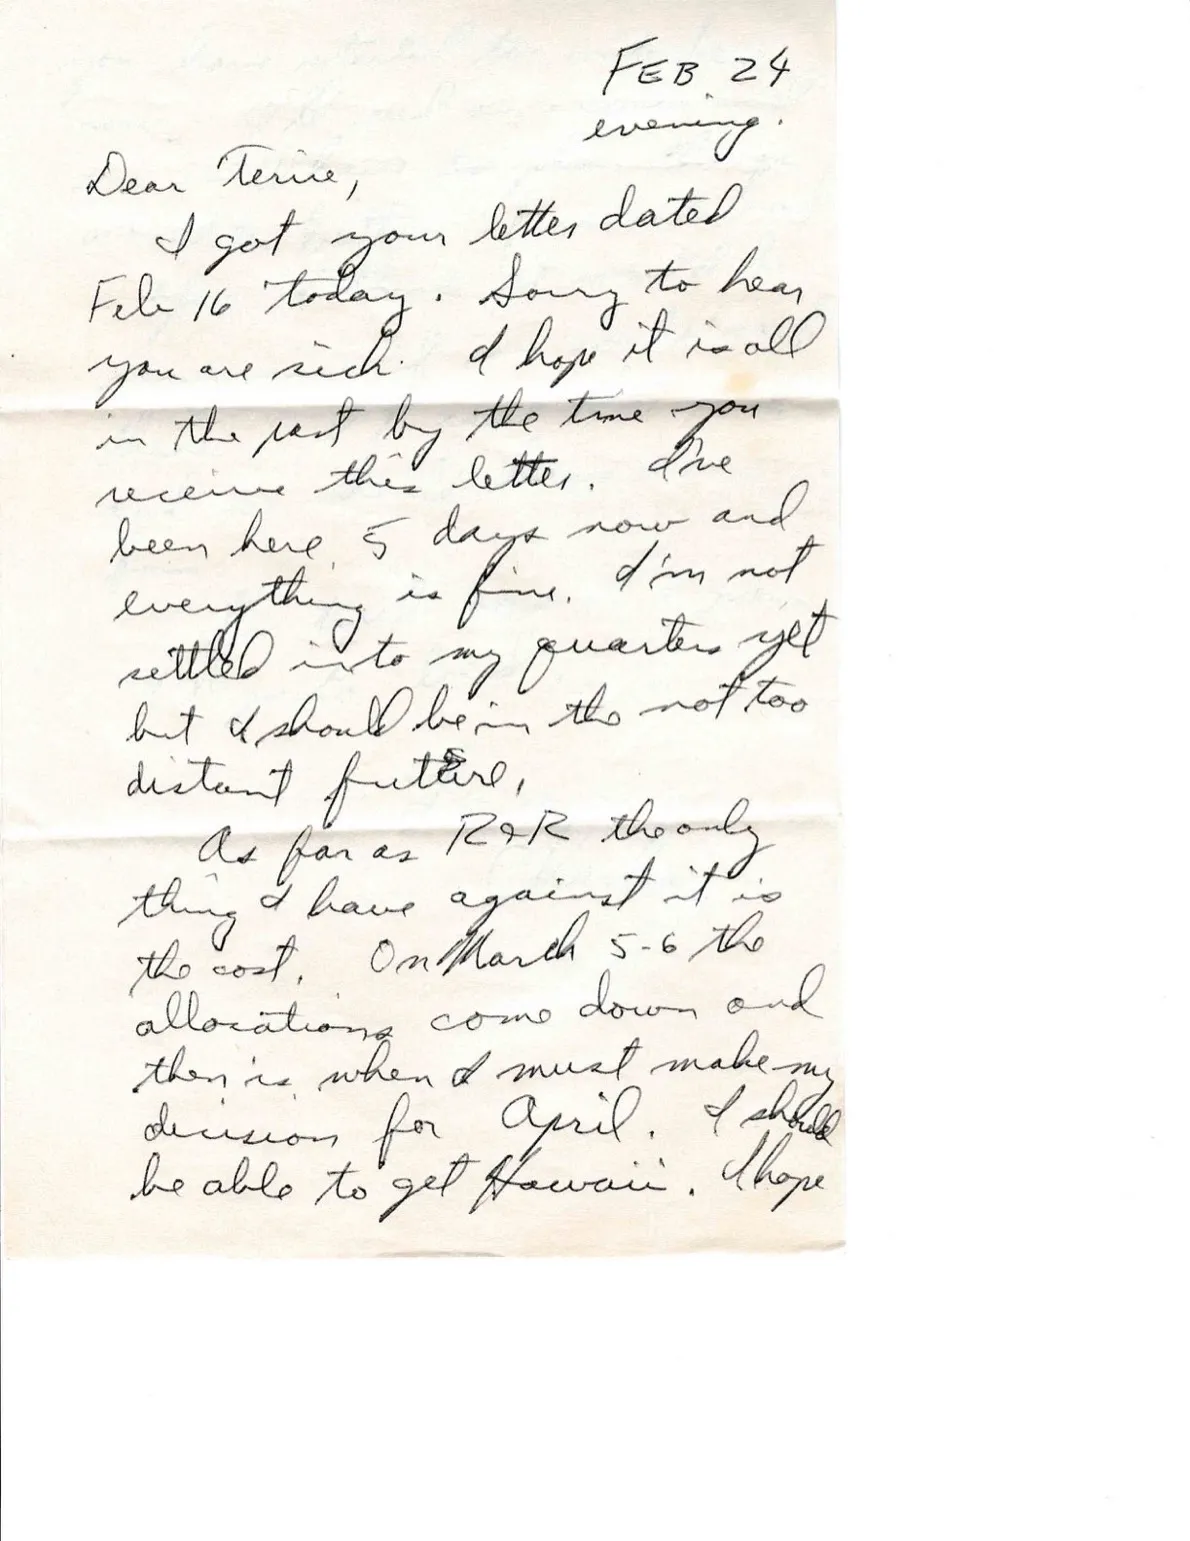 FEB. 24
evening.
Dear Terrie,
I got your letter dated
Feb 16 today. Sorry to hear
you are sick. I hope it is all
in the past by the time you
receive this letter. I've
been here 5 days now and
everything is fine. I'm not
settled into my quarters yet
but I should be in the not too
distant future.
As far as R&R the only
thing I have against it is
the cost. On March 5-6 the
allocations come down and
then is when I must make my
decision for April. I should
be able to get Hawaii. I hope